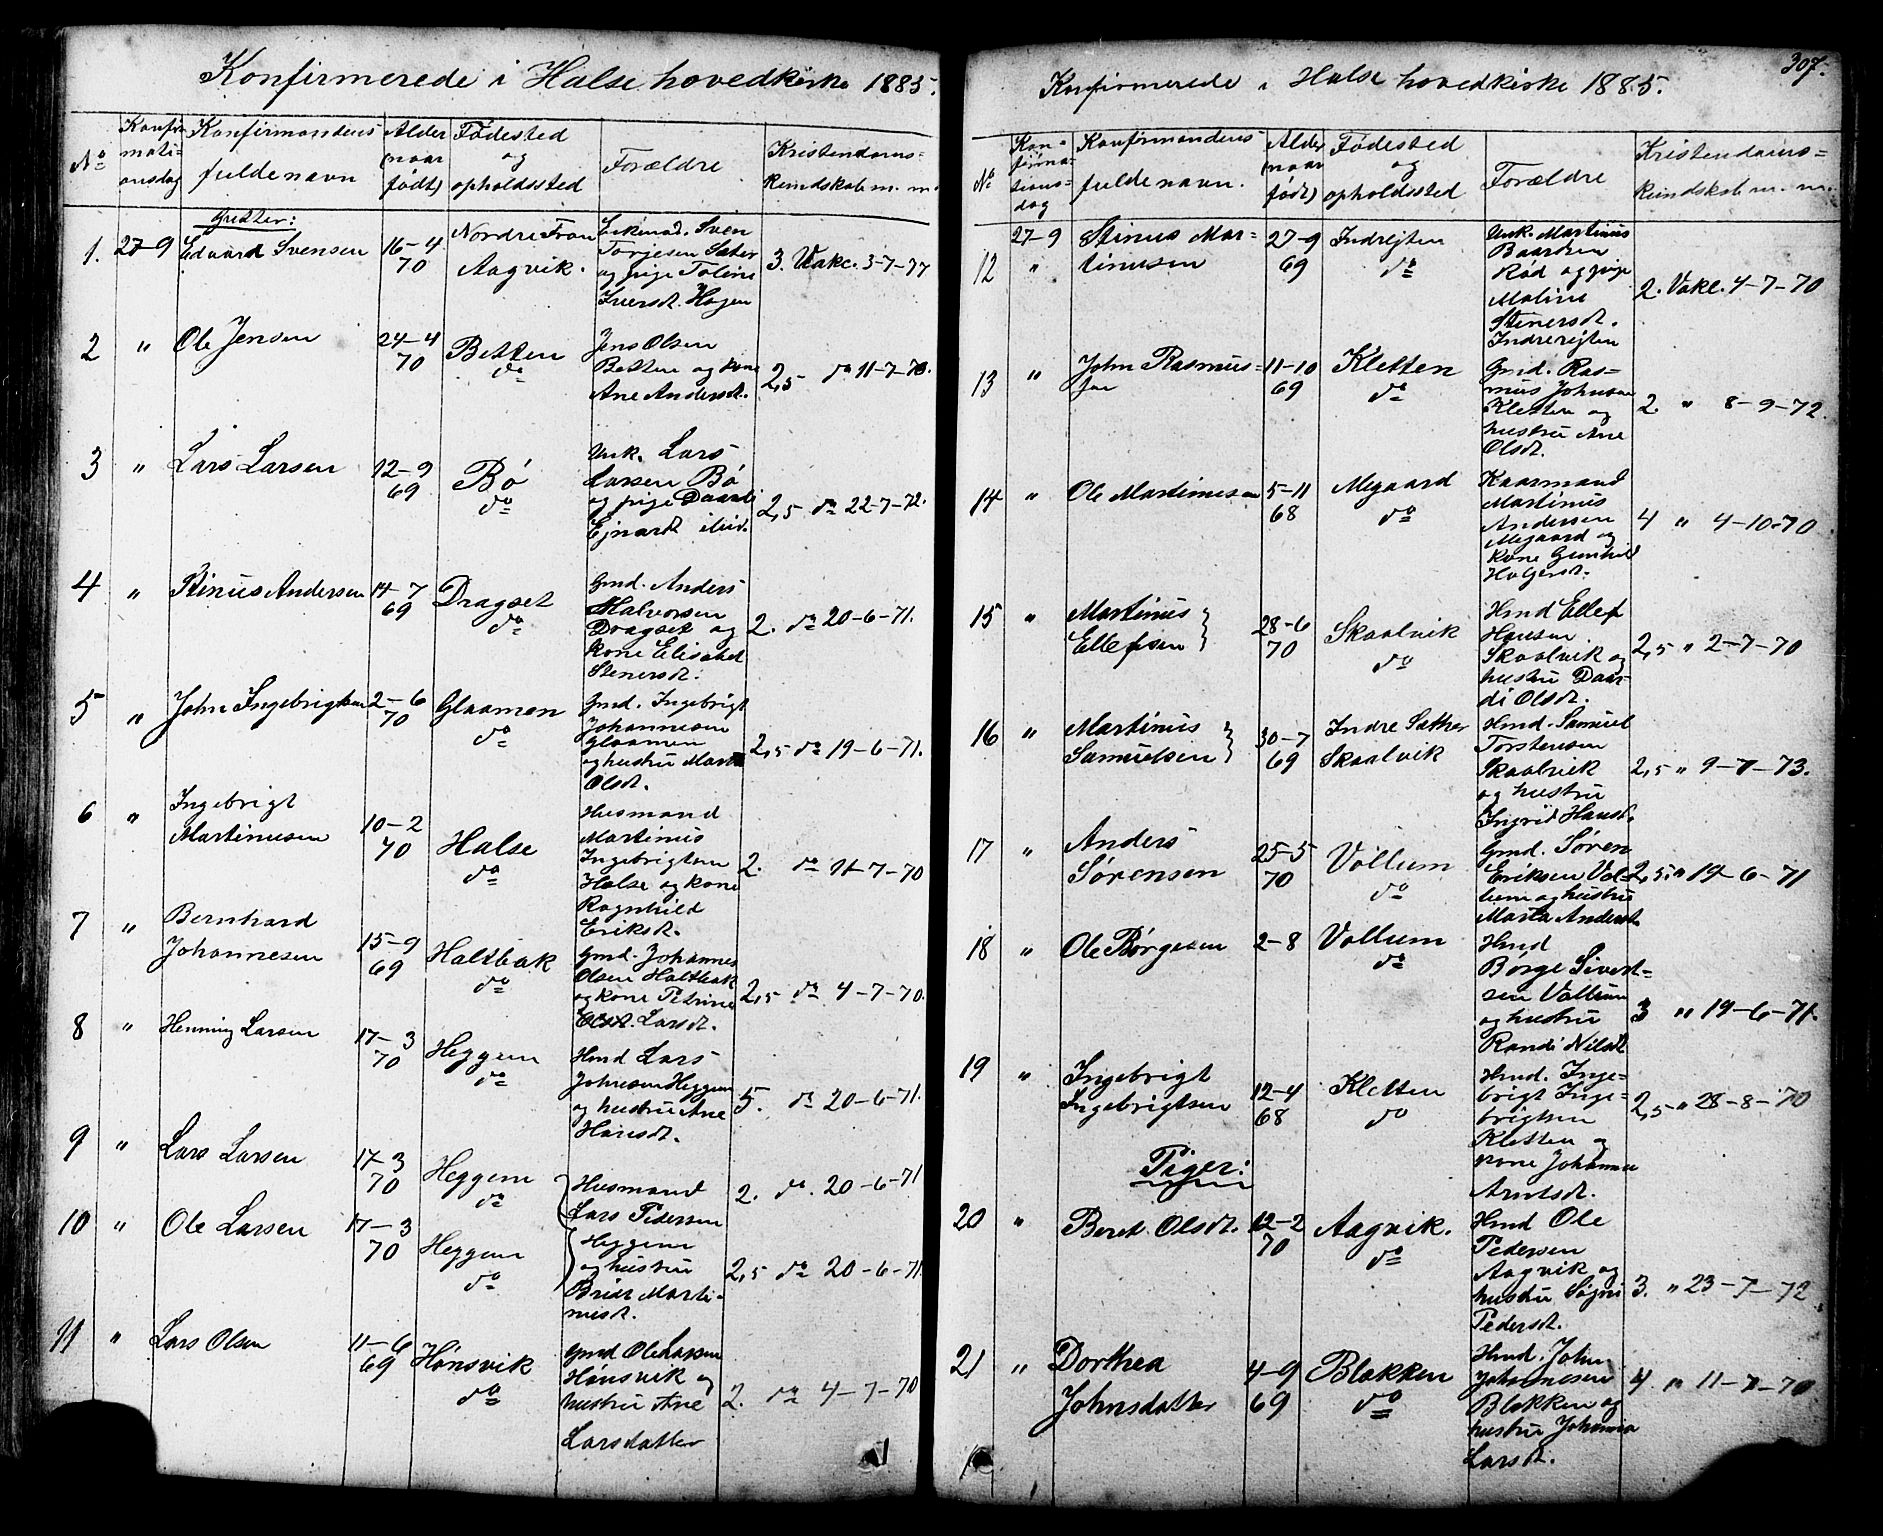 Konfirmerede i Halse hovedkirke 1885.
No
Konfir-
mati-
onsdag
Konfirmandens
fulde navn
Alder
(naar
født)
Fødested
og
opholdssted
Forældre
Kristendoms-
kundskab m. m.
Gutter:
1. 27-9 Edvard Svensen 16-4
70
Nordre
Aagvik.
Sven
Torgesen Sæter
og pige Toline
Iversdt. Hagen
3. Vakc. 3-7-77
2 " Ole Jensen 24-4
70
Betten
do
Jens Olsen
Betten og kone
Ane Andersdt.
2,5 do 11-7-
3 " Lars Larsen 12-9
69
Bø
do
Unk. Lars
Larsen Bø
og pige Daardi
Ejnarsdt ibid.
2,5 do 22-7-72.
4 " Stinus Andersen 14-7
69
Dragset
do
Gmd. Anders
Halvorsen
Dragset og
kone Elisabet
Stenersdt.
2. do 20-6-71.
5 " John Ingebrigtsen 2-6
70
Glaamen
do
Gmd. Ingebrigt
Johannesen
Glaamen
og hustru
Olsdt.
2,5 do 19-6-71.
6 " Ingebrigt
Martinusen
10-2
70
Halse
do
Husmand
Martinus
Ingebrigtsen
Halse og kone
Ragnhild
Eriksdt.
2. do 11-7-70
7 " Bernhard
Johannesen
15-9
69
Haltbak
do
Gmd. Johannes
Olsen Haltbak
og kone Petrine
Larsdt.
2,5 do 4-7-70.
8 " Henning Larsen 17-3
70
Heggem
do
Hmd Lars
Johnsen Heggem
og hustru Ane
Hansdt.
5. do 20-6-71.
9 " Lars Larsen 17-3
70
Heggem
do
Husmand
Lars Pedersen
2. do. 20-6-71
10 " Ole Larsen 17-3
70
Heggem
do
Heggem
og hustru
Brit Marti-
nusdt.
2,5 do 20-6-71.
11 " Lars Olsen 11-6
69
Hønsvik
do
Gmd Ole Larsen
Hønsvik og
hustru Ane
Larsdatter
2. do 4-7-70
307.
Konfirmerede i Halse hovedkirke 1885.
No
Kon-
firma-
tions-
dag
Konfirmandens
fulde navn.
Alder
(naar
født)
Fødested
og
opholdssted
Forældre
Kristendoms-
kundskab m. m.
12 27-9
"
Stinus Mar-
tinusen
27-9
69
Indrejten
do
Unk. Martinus
Baardsen
Rød og pige
Malina
Stenersdt.
Indrerejten
2. Vakc. 4-7-70
13 " John Rasmus-
sen
11-10
69
Kletten
do
Gmd. Ras-
mus Johnsen
Kletten og
hustru Ane
Olsdt.
2. " 8-9-72.
14 " Ole Martinusen 5-11
68
Megaard
do
Kaarmand
Martinus
Andersen
Megaard og
kone Gunhild
Holgersdt.
4 " 4-10-70
15 " Martinus
Ellefsen
28-6
70
Skaalvik
do
Hmd Ellef
Hansen
Skaalvik og
hustru Daar-
di Olsdt.
2,5 " 2-7-70
16 " Martinus
Samuelsen
30-7
69
Indre Sæther
Skaalvik
Hmd. Samuel
Torstensen
Skaalvik
og hustru
Ingrid Hansdt.
2,5 " 9-7-73.
17 " Anders
Sørensen
25-5
70
Vollum
do
Gmd. Søren
Eriksen Vol-
lum og hustru
Marta Andersdt.
2,5. " 19-6-71
18 " Ole Børgesen 2-8 Vollum
do
Hmd
Børge Sivert-
sen Vollum
og hustru
Randi Nilsdt
3 " 19-6-71.
19 " Ingebrigt
Ingebrigtsen
12-4
68
Kletten
do
Hmd. Inge-
brigt Inge-
brigtsen
Kletten og
kone Johanna
Arntsdt.
2,5 " 28-8-70
Piger:
20 " Beret Olsdt. 12-2
70
Aagvik.
do
Hmd Ole
Pedersen
Aagvik og
hustru Signi
Pedersdt.
3. " 23-7-72.
21 " Dorthea
Johnsdatter
4-9
69
Blekken
do
Hmd. John
Johannesen
Blekken og
hustru Johanna
Larsdt.
4. " 11-7-70